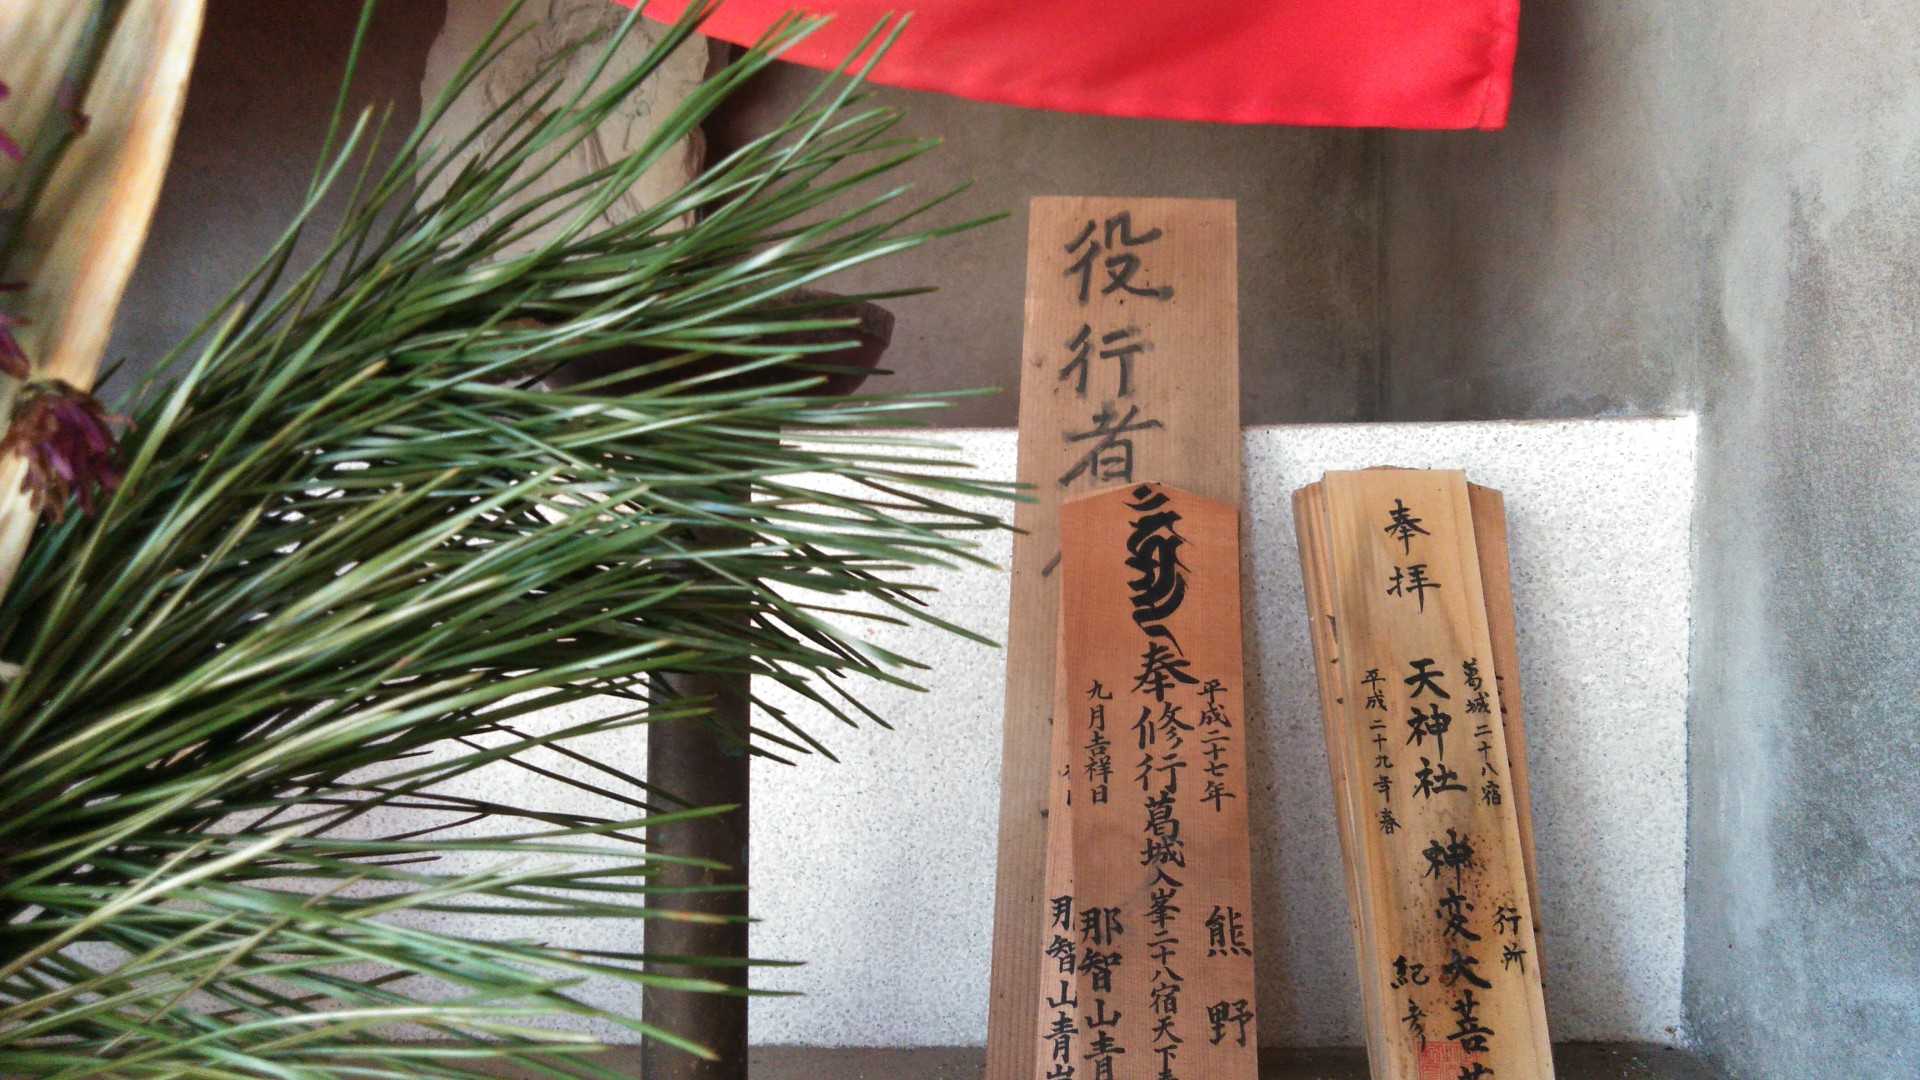 役行者
平成二十七年
熊野
奉修行葛城入峯二十八宿天下泰
九月吉祥日
那智山青
那智山青岸
葛城二十八宿
行所
奉拝
天神社 神変大菩
平成二十九年春
紀